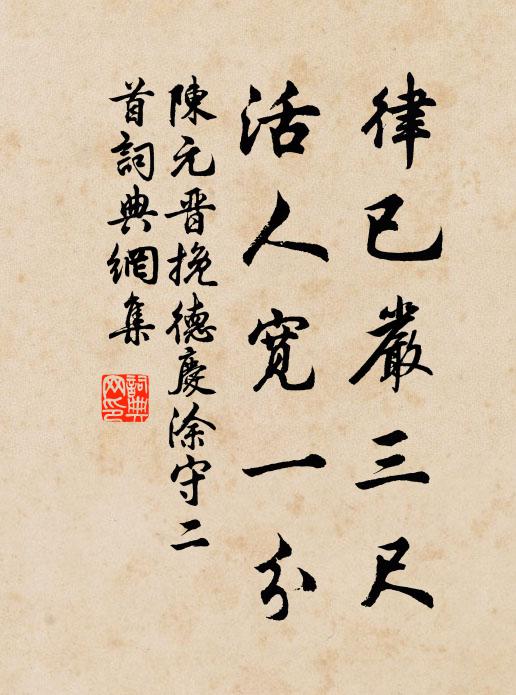 律已嚴三尺
活人寬一分
陳元晋挽德慶涂守二
首詞典網集
詞典网印